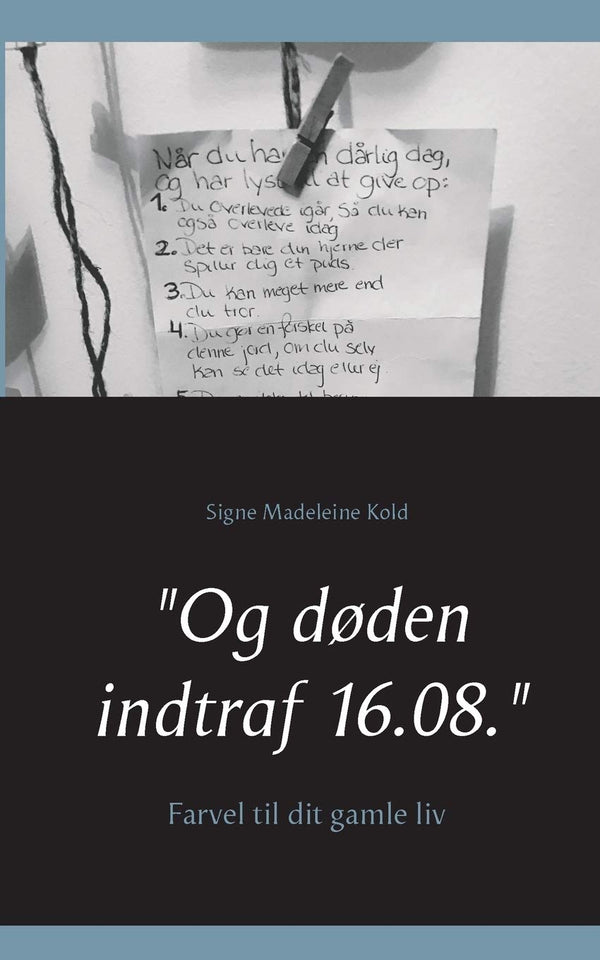 Når du har en dårlig dag,
og har lyst til at give op:
1. Du overlevede igår, så du kan
også overleve idag
2. Det er bare din hjerne der
spiller dig et puds.
3. Du kan meget mere end
du tror.
4. Du gør en forskel på
denne jord, om du selv
kan se det idag eller ej.
5.
Signe Madeleine Kold
"Og døden
indtraf 16.08."
Farvel til dit gamle liv